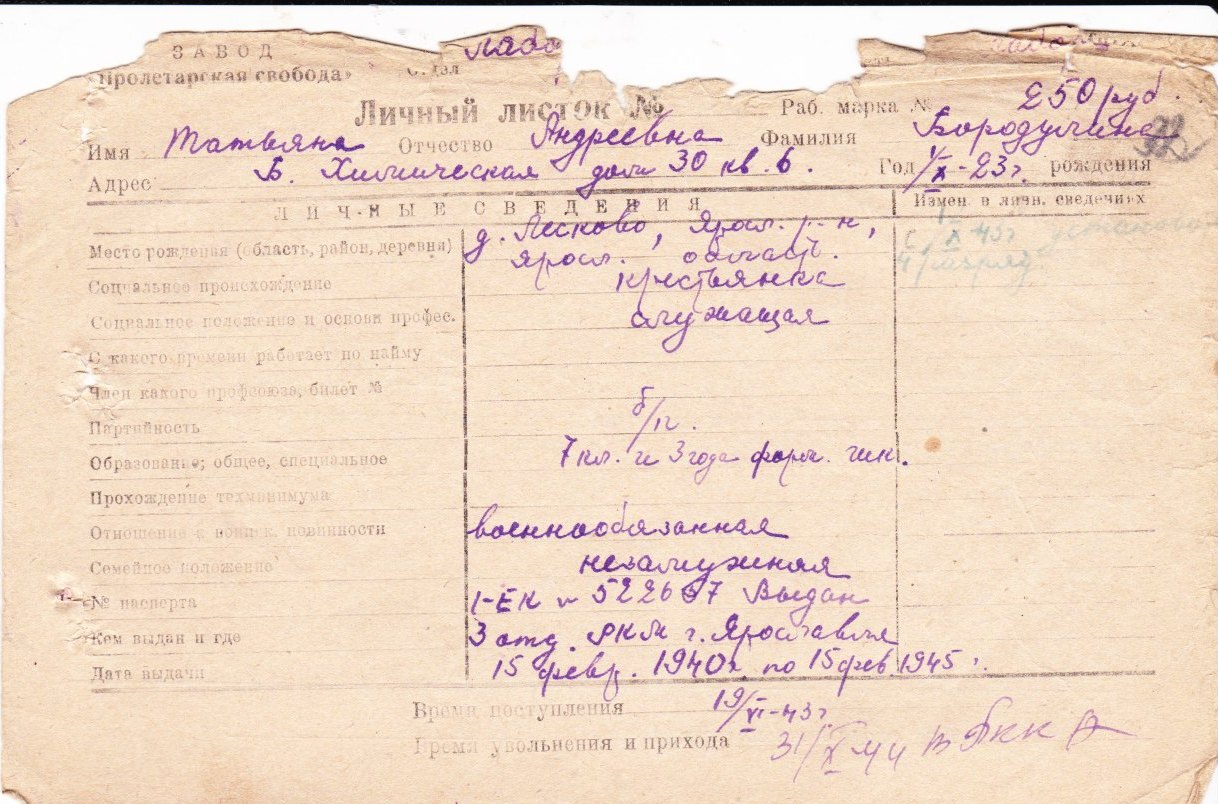 ЗАВОД
"Пролетарская свобода" Отдел
Личный листок № Раб. марка № 250 руб.
Имя Татьяна Отчество Андреевна Фамилия Бородулина
Адрес Б. Химическая дом 30 кв. 6. Год 1/IX-23г. рождения
ЛИЧНЫЕ СВЕДЕНИЯ Измен. в личн. сведениях
Место рождения (область, район, деревня) д. Лесково, Яросл. р-н, Яросл. област.
с 1/X 43г установ.
4 разряд
Социальное происхождение крестьянка
Социальное положение и основн профес. служащая
С какого времени работает по найму
Член какого профсоюза, билет №
Партийность б/п.
Образование; общее, специальное 7 кл. и 3 года фарм. шк.
Прохождение техминимума
Отношение к воинск. повинности военнообязанная
Семейное положение незамужняя
№ паспорта I-ЕК № 522637 Выдан
Кем выдан и где 3 отд. РКМ г. Ярославля
Дата выдачи 15 февр. 1940г. по 15 фев. 1945 г.
Время поступления 19/VI-43г
Время увольнения и прихода 31/X 44 в РККА